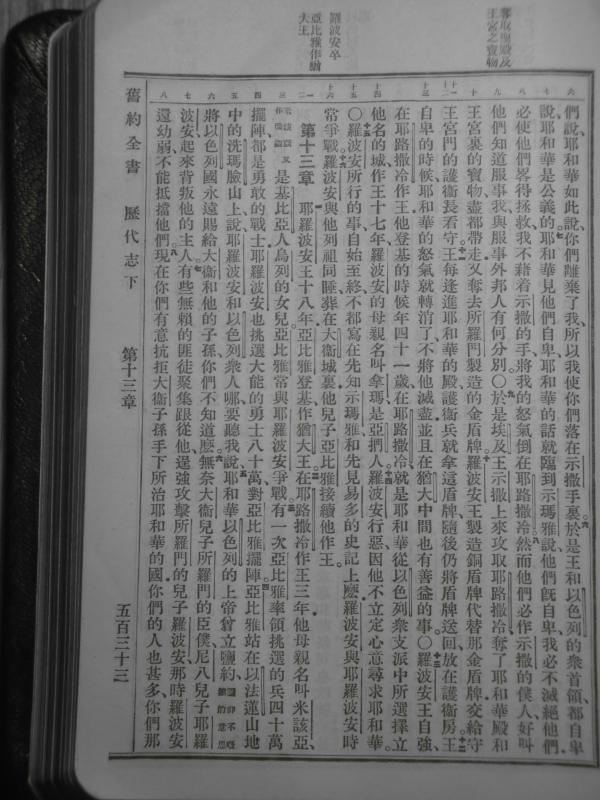 奪取聖殿及
王宮之寶物
羅波安卒
亞比雅作猶
大王
們說、耶和華如此說、你們離棄了我、所以我使你們落在示撒手裏。於是王和以色列的衆首領、都自卑
說、耶和華是公義的。耶和華見他們自卑、耶和華的話就臨到示瑪雅說、他們旣自卑、我必不滅絕他們、
必使他們畧得拯救、我不藉着示撒的手、將我的怒氣倒在耶路撒冷。然而他們必作示撒的僕人、好叫
他們知道服事我、與服事外邦人有何分別。〇於是埃及王示撒上來攻取耶路撒冷、奪了耶和華殿和
王宮裏的寶物、盡都帶走、又奪去所羅門製造的金盾牌。羅波安王製造銅盾牌代替那金盾牌、交給守
王宮門的護衞長看守。王每逢進耶和華的殿、護衞兵就拿這盾牌、隨後仍將盾牌送回、放在護衞房。王
自卑的時候、耶和華的怒氣就轉消了、不將他滅盡、並且在猶大中間也有善益的事。〇羅波安王自強、
在耶路撒冷作王、他登基的時候、年四十一歲、在耶路撒冷、就是耶和華從以色列衆支派中所選擇立
他名的城、作王十七年、羅波安的母親名叫拿瑪、是亞捫人。羅波安行惡、因他不立定心意尋求耶和華。
〇羅波安所行的事、自始至終、不都寫在先知示瑪雅和先見易多的史記上麽。羅波安與耶羅波安時
常爭戰。羅波安與他列祖同睡、葬在大衞城裏、他兒子亞比雅接續他作王。
第十三章 耶羅波安王十八年、亞比雅登基作猶大王、在耶路撒冷作王三年、他母親名叫米該亞、
是基比亞人烏列的女兒。亞比雅常與耶羅波安爭戰。有一次亞比雅率領挑選的兵四十萬
擺陣、都是勇敢的戰士、耶羅波安也挑選大能的勇士八十萬、對亞比雅擺陣。亞比雅站在以法蓮山地
中的洗瑪臉山上、說、耶羅波安和以色列衆人哪、要聽我說。耶和華以色列的上帝曾立鹽約、鹽卽不廢壞的意思
將以色列國永遠賜給大衞和他的子孫、你們不知道麽。無奈大衞兒子所羅門的臣僕、尼八兒子耶羅
波安起來背叛他的主人。有些無賴的匪徒聚集跟從他、逞強攻擊所羅門的兒子羅波安、那時羅波安
還幼弱、不能抵擋他們。現在你們有意抗拒大衞子孫手下所治耶和華的國、你們的人也甚多、你們那
舊約全書 歷代志下 第十三章 五百三十三